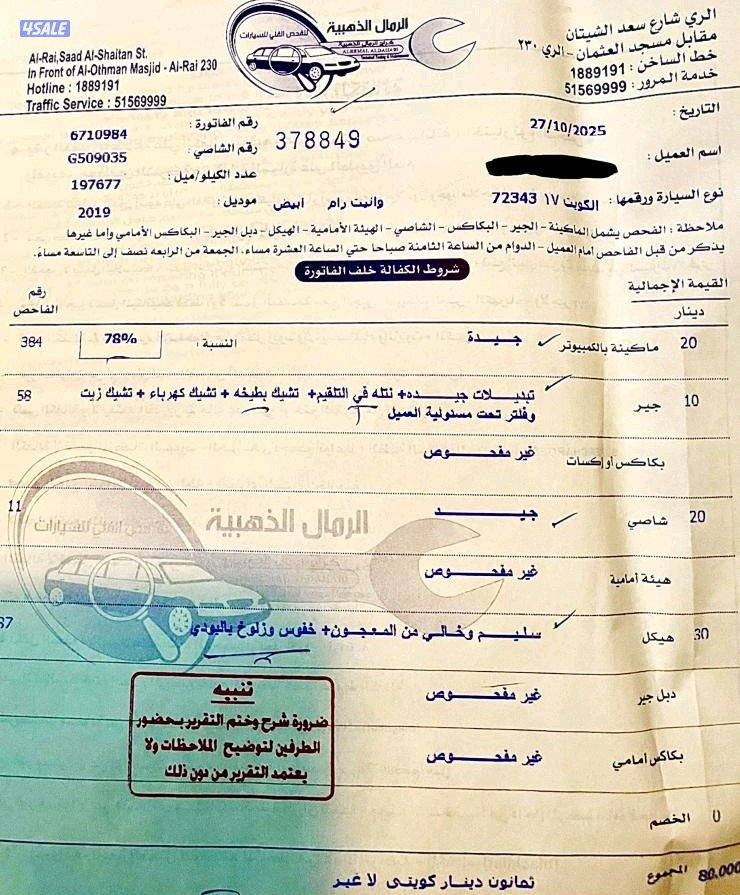 4SALE
الرمال الذهبية
لفحص الفني للسيارات
الري شارع سعد الشيتان
مقابل مسجد العثمان - الري ٢٣٠
خط الساخن : 1889191
خدمة المرور : 51569999
Al-Rai,Saad Al-Shaitan St.
In Front of Al-Othman Masjid - Al-Rai 230
Hotline : 1889191
Traffic Service : 51569999
التاريخ : 27/10/2025
378849
رقم الفاتورة : 6710984
اسم العميل :
رقم الشاصي : G509035
عدد الكيلو/ميل : 197677
نوع السيارة ورقمها : الكويت ١٧ 72343 وانيت رام ابيض
موديل : 2019
ملاحظة : الفحص يشمل الماكينة - الجير - البكاكس - الشاصي - الهيئة الأمامية - الهيكل - دبل الجير - البكاكس الأمامي وأما غيرها
يذكر من قبل الفاحص أمام العميل - الدوام من الساعة الثامنة صباحا حتي الساعة العشرة مساء، الجمعة من الرابعه نصف إلى التاسعة مساءً.
شروط الكفالة خلف الفاتورة
القيمة الإجمالية
دينار
رقم الفاحص
20 ماكينة بالكمبيوتر جيدة النسبة : 78% 384
10 جير تبديلات جيده+ نتله في التلقيم+ تشيك بطيخه + تشيك كهرباء + تشيك زيت 58
وفلتر تحت مسئولية العميل
بكاكس أو إكسات غير مفحوص
20 شاصي جيد 11
الرمال الذهبية
هيئة أمامية غير مفحوص
30 هيكل سليم وخالي من المعجون+ خفوس وزلوخ بالبودي 87
دبل جير غير مفحوص
بكاكس أمامي غير مفحوص
تنبيه
ضرورة شرح وختم التقرير بحضور
الطرفين لتوضيح الملاحظات ولا
يعتمد التقرير من دون ذلك
0 الخصم
80.000 المجموع ثمانون دينار كويتى لا غير